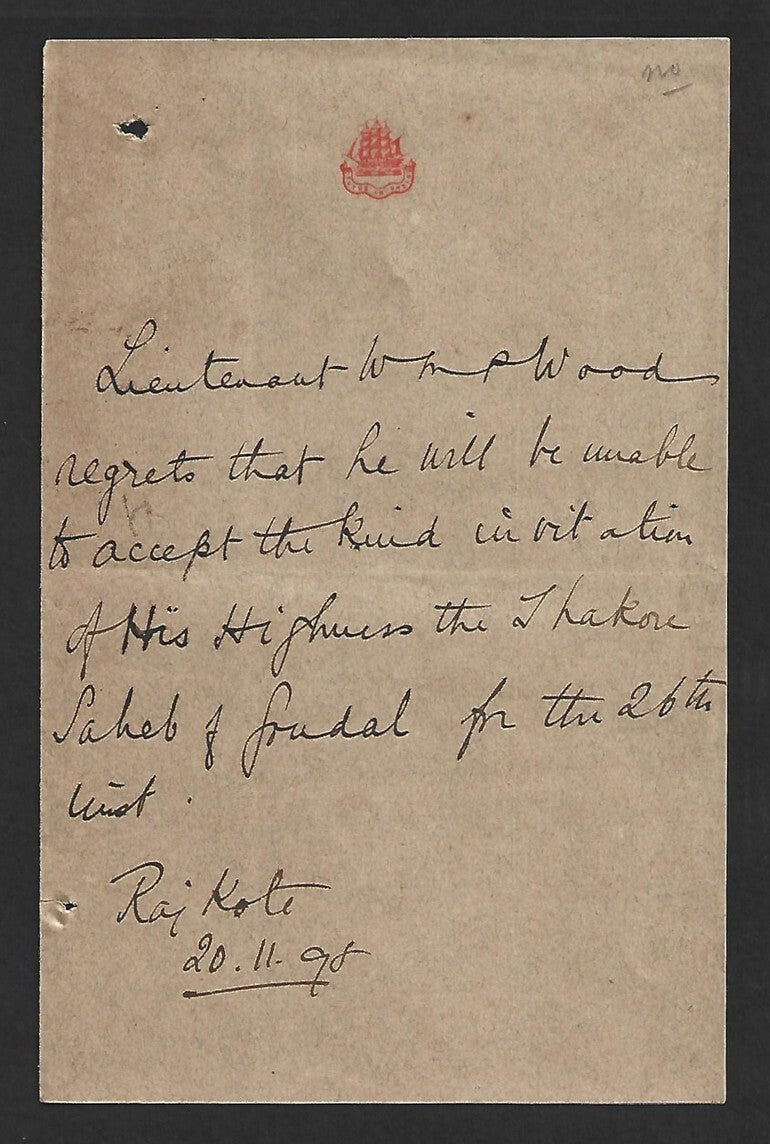 no
Lieutenant W M P Wood
regrets that he will be unable
to accept the kind invitation
of His Highness the Thakore
Saheb of Gondal for the 26th
inst.
Raj Kote
20.11.98